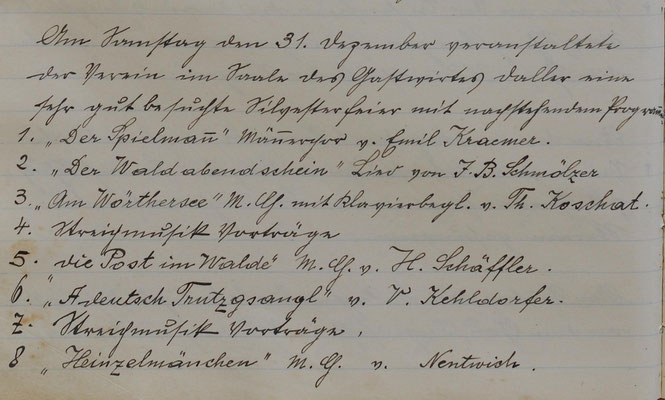 Am Samstag den 31. Dezember veranstaltete
der Verein im Saale des Gastwirtes Daller eine
sehr gut besuchte Silvesterfeier mit nachstehendem Program
1. „Der Spielmañ" Mäñerchor v. Emil Kraemer.
2. „Der Waldabendschein" Lied von J. B. Schmölzer
3. „Am Wörthersee" M. Ch. mit Klavierbegl. v. Th. Koschat.
4. Streichmusik Vorträge
5. „die Post im Walde" M. Ch. v. H. Schäffler.
6. „A deutsch Trutzgsangl" v. V. Kehldorfer.
7. Streichmusik Vorträge.
8 „Heinzelmänchen" M. Ch. v. Nentwich.